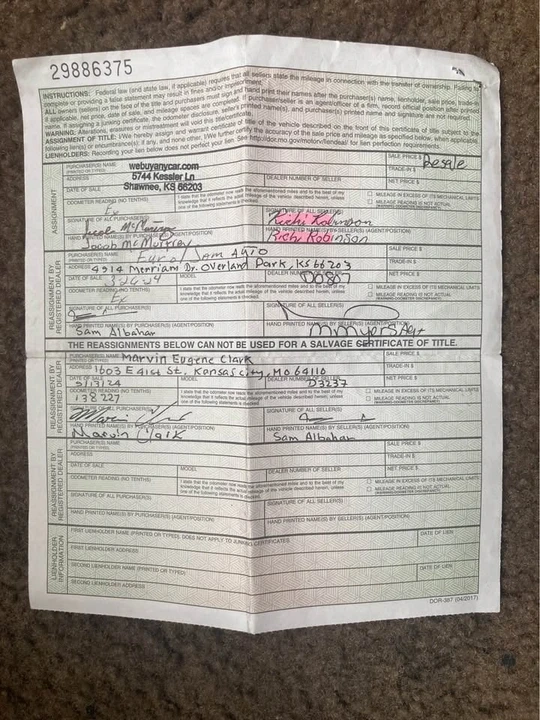 29886375
INSTRUCTIONS: Federal law (and state law, if applicable) requires that all sellers state the mileage in connection with the transfer of ownership. Failing to
complete or providing a false statement may result in fines and/or imprisonment.
ALL owners (sellers) on the face of the title and purchasers must sign and hand print their names after the purchaser(s) name, lienholder, sale price, trade-in
if applicable, net price, date of sale, and mileage spaces are completed. If purchaser/seller is an agent/officer of a firm, record official position after printed
name. If assigning a junking certificate, the odometer disclosure, seller's printed name(s), and purchaser's printed name and signature are not required.
WARNING: Alterations, erasures or mistreatment will void this title/certificate.
ASSIGNMENT OF TITLE: I/We hereby assign and warrant certificate of title of the vehicle described on the front of this certificate of title subject to the
following lien(s) or encumbrance(s), if any, and none other; I/We further certify the accuracy of the sale price and mileage as specified below, when applicable.
LIENHOLDERS: Recording your lien below does not perfect your lien. See http://dor.mo.gov/motorv/liendeal/ for lien perfection requirements.
ASSIGNMENT
PURCHASER(S) NAME (PRINTED OR TYPED) webuyanycar.com SALE PRICE $ Resale
ADDRESS 5744 Kessler Ln TRADE-IN $
Shawnee, KS 66203
DATE OF SALE DEALER NUMBER OF SELLER NET PRICE $
ODOMETER READING (NO TENTHS) Ex I state that the odometer now reads the aforementioned miles and to the best of my knowledge that it reflects the actual mileage of the vehicle described herein, unless one of the following statements is checked. MILEAGE IN EXCESS OF ITS MECHANICAL LIMITS
MILEAGE READING IS NOT ACTUAL
SIGNATURE OF ALL PURCHASER(S) SIGNATURE OF ALL SELLER(S) Richi Robinson
HAND PRINTED NAME(S) BY PURCHASER(S) (AGENT/POSITION) Jacob McMurray HAND PRINTED NAME(S) BY SELLER(S) (AGENT/POSITION) Richi Robinson
REASSIGNMENT BY REGISTERED DEALER
PURCHASER(S) NAME (PRINTED OR TYPED) SALE PRICE $
ADDRESS 4914 Merriam Dr. Overland Park, KS 66203 TRADE-IN $
DATE OF SALE MODEL DEALER NUMBER OF SELLER D0807 NET PRICE $
ODOMETER READING (NO TENTHS) Ex I state that the odometer now reads the aforementioned miles and to the best of my knowledge that it reflects the actual mileage of the vehicle described herein, unless one of the following statements is checked. MILEAGE IN EXCESS OF ITS MECHANICAL LIMITS
MILEAGE READING IS NOT ACTUAL
SIGNATURE OF ALL PURCHASER(S) SIGNATURE OF ALL SELLER(S)
HAND PRINTED NAME(S) BY PURCHASER(S) (AGENT/POSITION) Sam Albahar HAND PRINTED NAME(S) BY SELLER(S) (AGENT/POSITION)
THE REASSIGNMENTS BELOW CAN NOT BE USED FOR A SALVAGE CERTIFICATE OF TITLE.
REASSIGNMENT BY REGISTERED DEALER
PURCHASER(S) NAME (PRINTED OR TYPED) Marvin Eugene Clark SALE PRICE $
ADDRESS 1603 E 41st St. Kansas city, MO 64110 TRADE-IN $
DATE OF SALE MODEL DEALER NUMBER OF SELLER D3237 NET PRICE $
ODOMETER READING (NO TENTHS) 138227 I state that the odometer now reads the aforementioned miles and to the best of my knowledge that it reflects the actual mileage of the vehicle described herein, unless one of the following statements is checked. MILEAGE IN EXCESS OF ITS MECHANICAL LIMITS
MILEAGE READING IS NOT ACTUAL
SIGNATURE OF ALL PURCHASER(S) SIGNATURE OF ALL SELLER(S)
HAND PRINTED NAME(S) BY PURCHASER(S) (AGENT/POSITION) Marvin Clark HAND PRINTED NAME(S) BY SELLER(S) (AGENT/POSITION) Sam Albahar
REASSIGNMENT BY REGISTERED DEALER
PURCHASER(S) NAME (PRINTED OR TYPED) SALE PRICE $
ADDRESS TRADE-IN $
DATE OF SALE MODEL DEALER NUMBER OF SELLER NET PRICE $
ODOMETER READING (NO TENTHS) I state that the odometer now reads the aforementioned miles and to the best of my knowledge that it reflects the actual mileage of the vehicle described herein, unless one of the following statements is checked. MILEAGE IN EXCESS OF ITS MECHANICAL LIMITS
MILEAGE READING IS NOT ACTUAL
SIGNATURE OF ALL PURCHASER(S) SIGNATURE OF ALL SELLER(S)
HAND PRINTED NAME(S) BY PURCHASER(S) (AGENT/POSITION) HAND PRINTED NAME(S) BY SELLER(S) (AGENT/POSITION)
LIENHOLDER INFORMATION
FIRST LIENHOLDER NAME (PRINTED OR TYPED), DOES NOT APPLY TO JUNKING CERTIFICATES DATE OF LIEN
FIRST LIENHOLDER ADDRESS
SECOND LIENHOLDER NAME (PRINTED OR TYPED) DATE OF LIEN
SECOND LIENHOLDER ADDRESS
DOR-367 (04/2017)